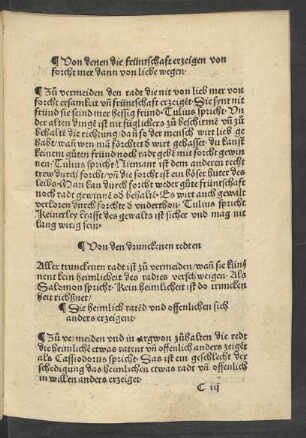 ¶ Von denen die früntschafft erzeigen von
forcht mer dann von liebe wegen
¶ Zů vermeiden den radt die nit von lieb mer von
forcht ersamkeit vñ früntschafft erzeiget · Sie seynt nit
fründ sie seind mer heissig fründ · Tulius spricht · Vn
der allen dingē ist nit füglichers zů beschirmē vñ zů
behaltē die richtung, dañ so der mensch wirt lieb ge
habt, wañ wen mā förchtet d wirt gehasset · du kanst
keinem gůten fründ noch radt gebē mit forcht gewin
nen · Tulius spricht · Niemant ist dem anderen recht
trew durch forcht, vñ die forcht ist ein böser hüter des
leibs · Man kan durch forcht weder gůte früntschafft
noch radt gewinnē oð behaltē · Es wirt auch gewalt
verloren durch forcht ð vnderthon · Tulius spricht
Keinerley krafft des gewalts ist sicher vnd mag nit
lang wirig sein ·
¶ Von den drunckenen redten
Aller trunckenen radt ist zů vermeiden, wañ sie kün
nent kein heimlicheit des radtes verschweigen · Als
Salomon spricht · Kein heimlicheit ist do truncken
heit richßnet,
¶ Die heimlich ratēd vnd offenlichen sich
anders erzeigent ·
¶ Zů vermeiden vnd in argwon zůhalten die redt
die heimlichē etwas ratent vñ offenlich anders zeigēt
als Cassiodorus spricht · Das ist ein geschlecht der
schedigung das heimlichen etwas radt vñ offenlich
in willen anders erzeiget ·
C iij